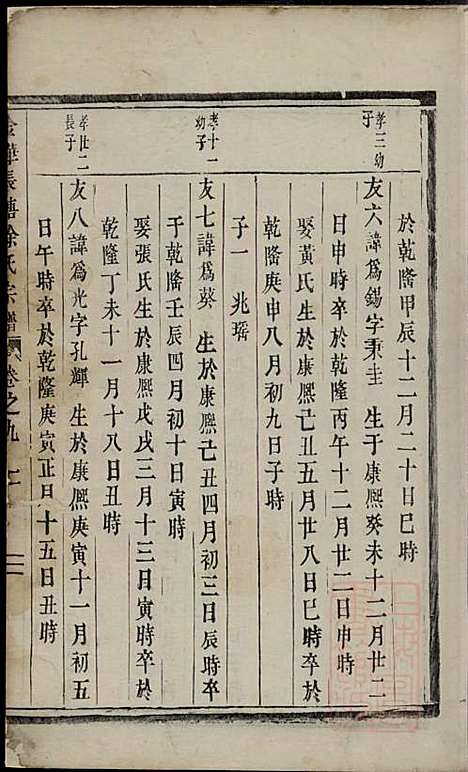 於乾隆甲辰十二月二十日巳時
孝三幼子
友六諱爲錫字秉圭 生于康熙癸未十二月廿二
日申時卒於乾隆丙午十二月廿二日申時
娶黃氏生於康熙己丑五月廿八日巳時卒於
乾隆庚申八月初九日子時
子一 兆瑶
孝十一幼子
友七諱爲葵 生於康熙己丑四月初三日辰時卒
于乾隆壬辰四月初十日寅時
娶張氏生於康熙戊戌三月十三日寅時卒於
乾隆丁未十一月十八日丑時
孝廿二長子
友八諱爲光字孔輝 生於康熙庚寅十一月初五
日午時卒於乾隆庚寅正月十五日丑時
徐氏宗譜 卷之九